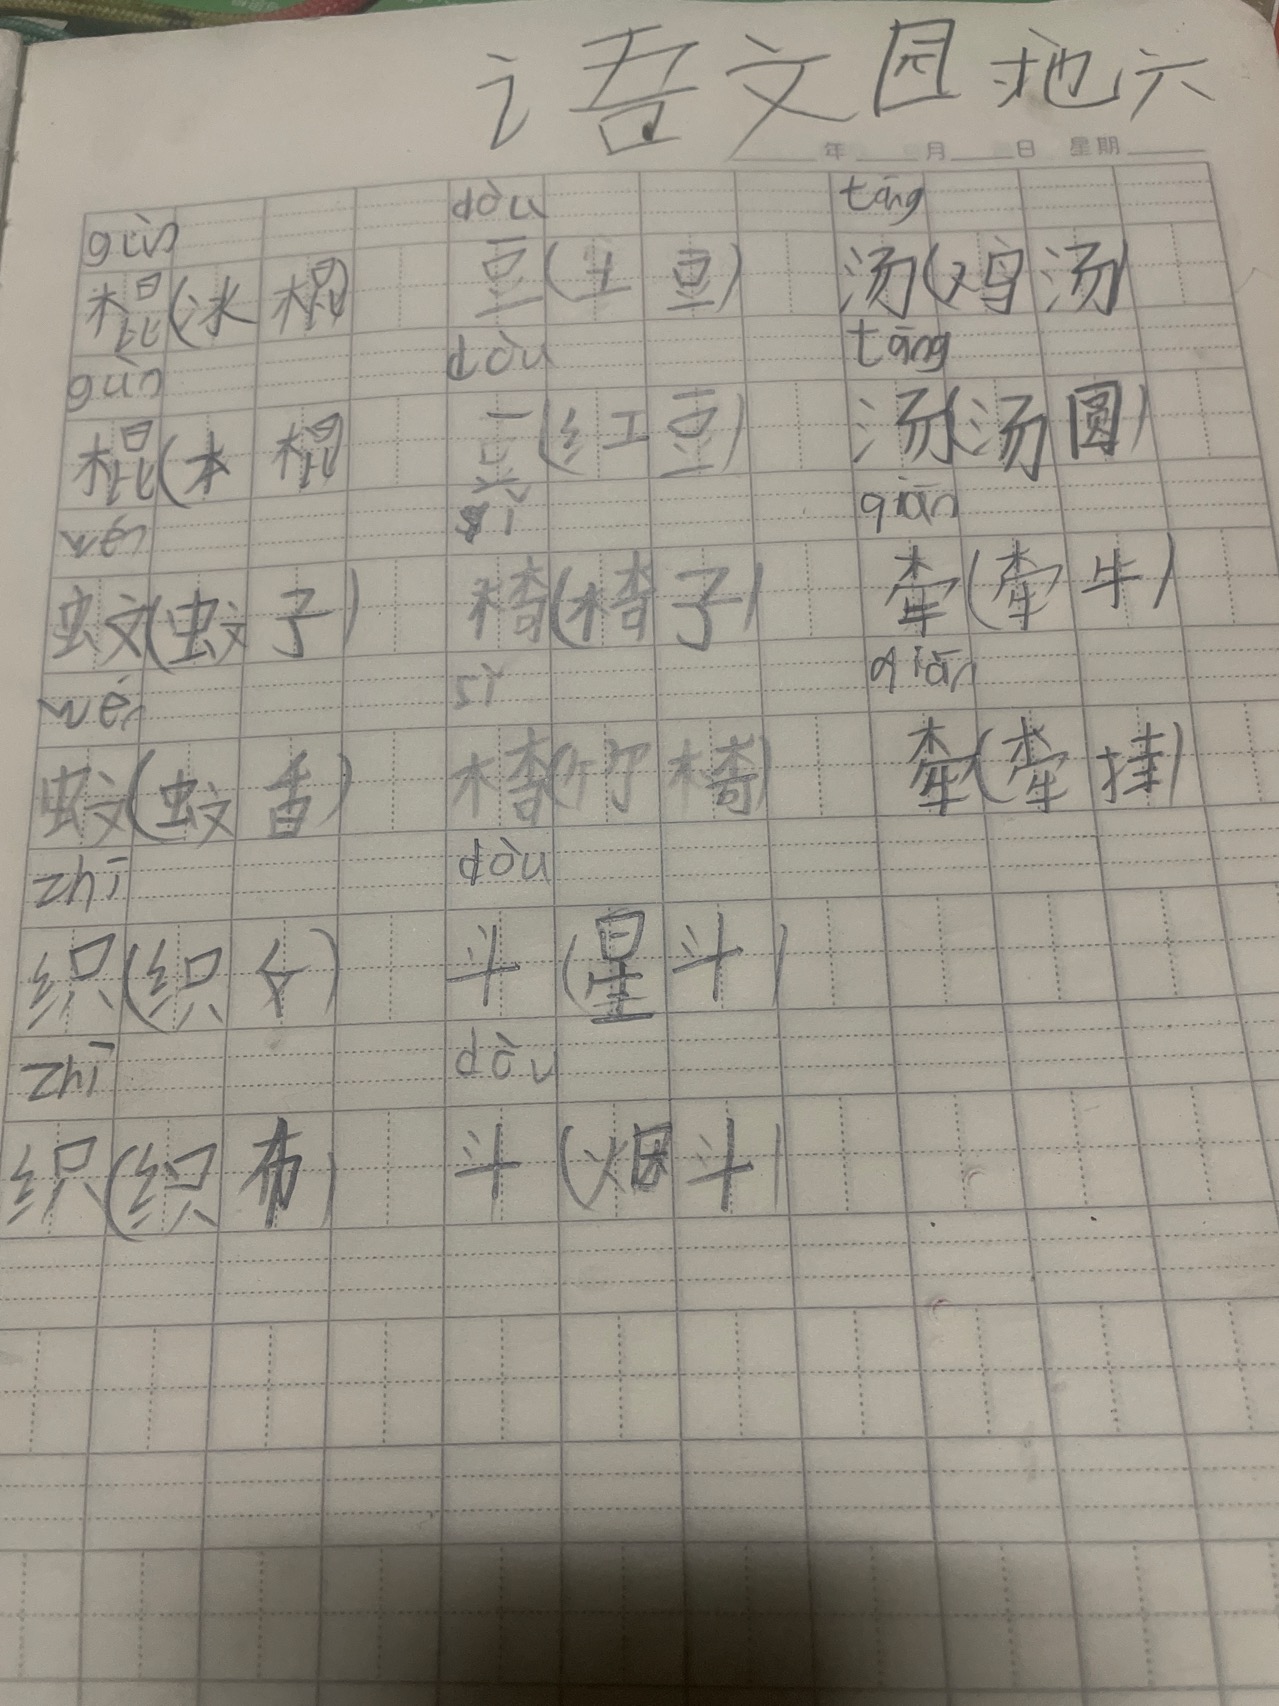 语文园地六
年 月 日 星期
gùn dòu tāng
棍(冰棍 豆(土豆) 汤(鸡汤)
gùn dòu tāng
棍(木棍 豆(红豆) 汤(汤圆)
wén yǐ qiān
蚊(蚊子) 椅(椅子) 牵(牵牛)
wén yǐ qiān
蚊(蚊香) 椅(竹椅) 牵(牵挂)
zhī dòu
织(织女) 斗(星斗)
zhī dòu
织(织布) 斗(烟斗)